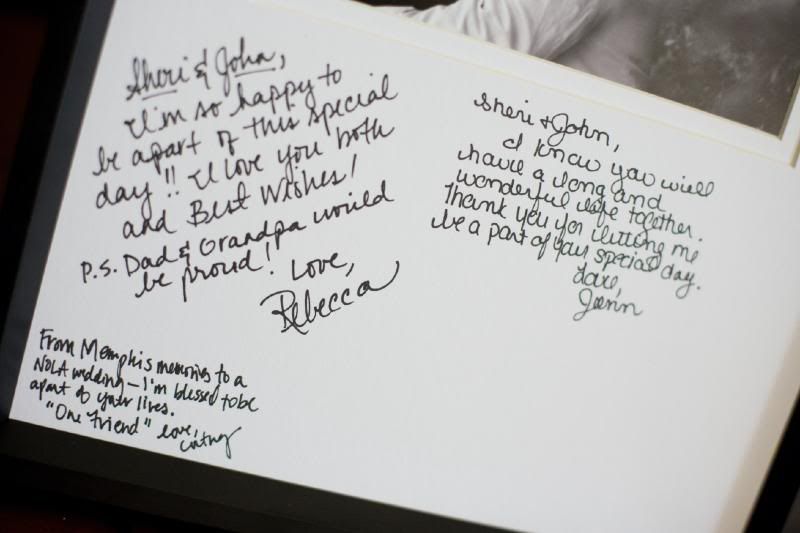 Sheri & John,
I'm so happy to
be apart of this special
day!! I love you both
and Best Wishes!
P.S. Dad & Grandpa would
be proud!
Love,
Rebecca
Sheri & John,
I know you will
have a long and
wonderful life together.
Thank you for letting me
be a part of your special day.
Love,
Jenn
From Memphis memories to a
NOLA wedding - I'm blessed to be
apart of your lives.
"One Friend" love,